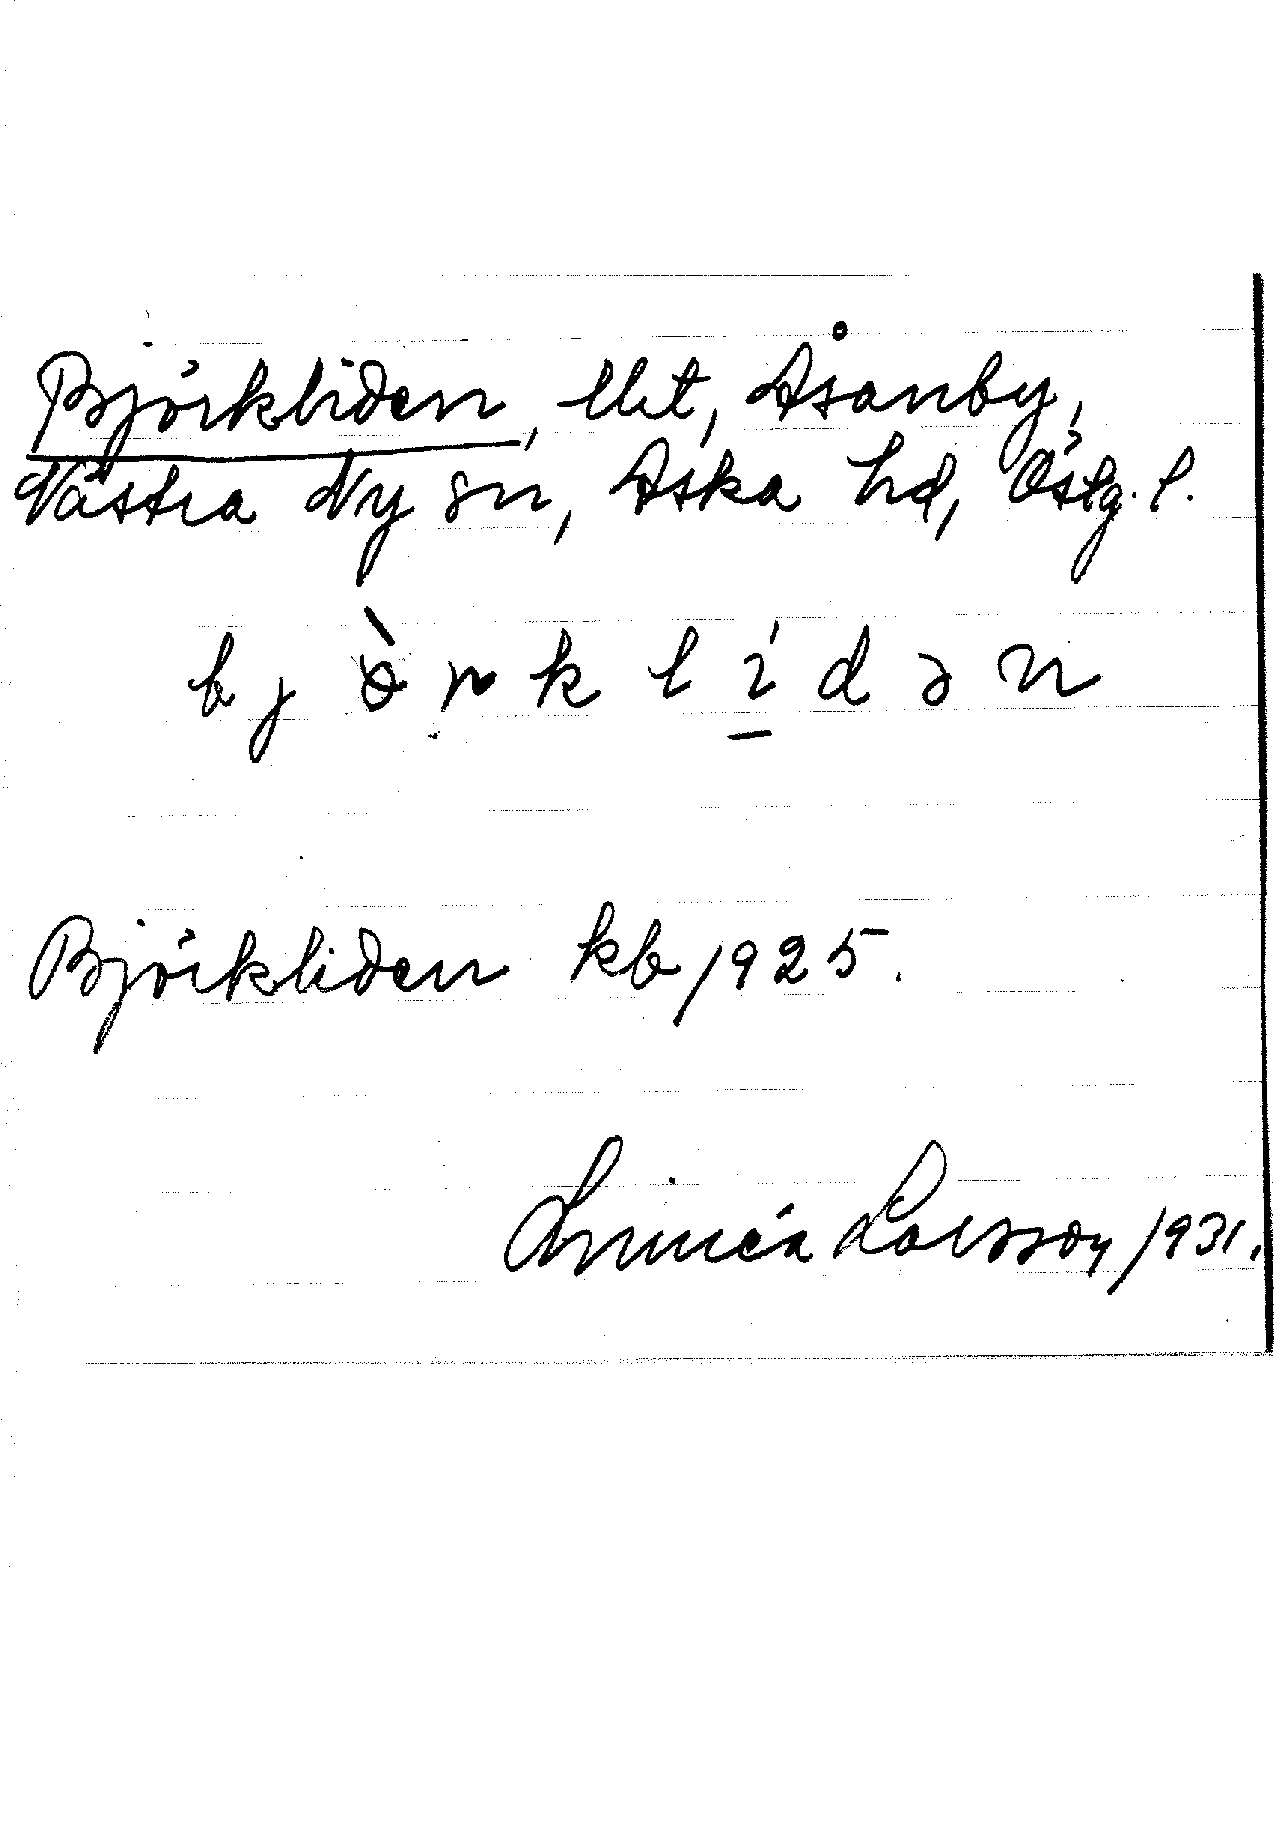 Björkliden, lht, Åsanby,
Västra Ny sn, Aska hd, Östg. l.
b j ö̀ r k l í d ə n
Björkliden kb 1925.
Linnéa Larsson 1931.